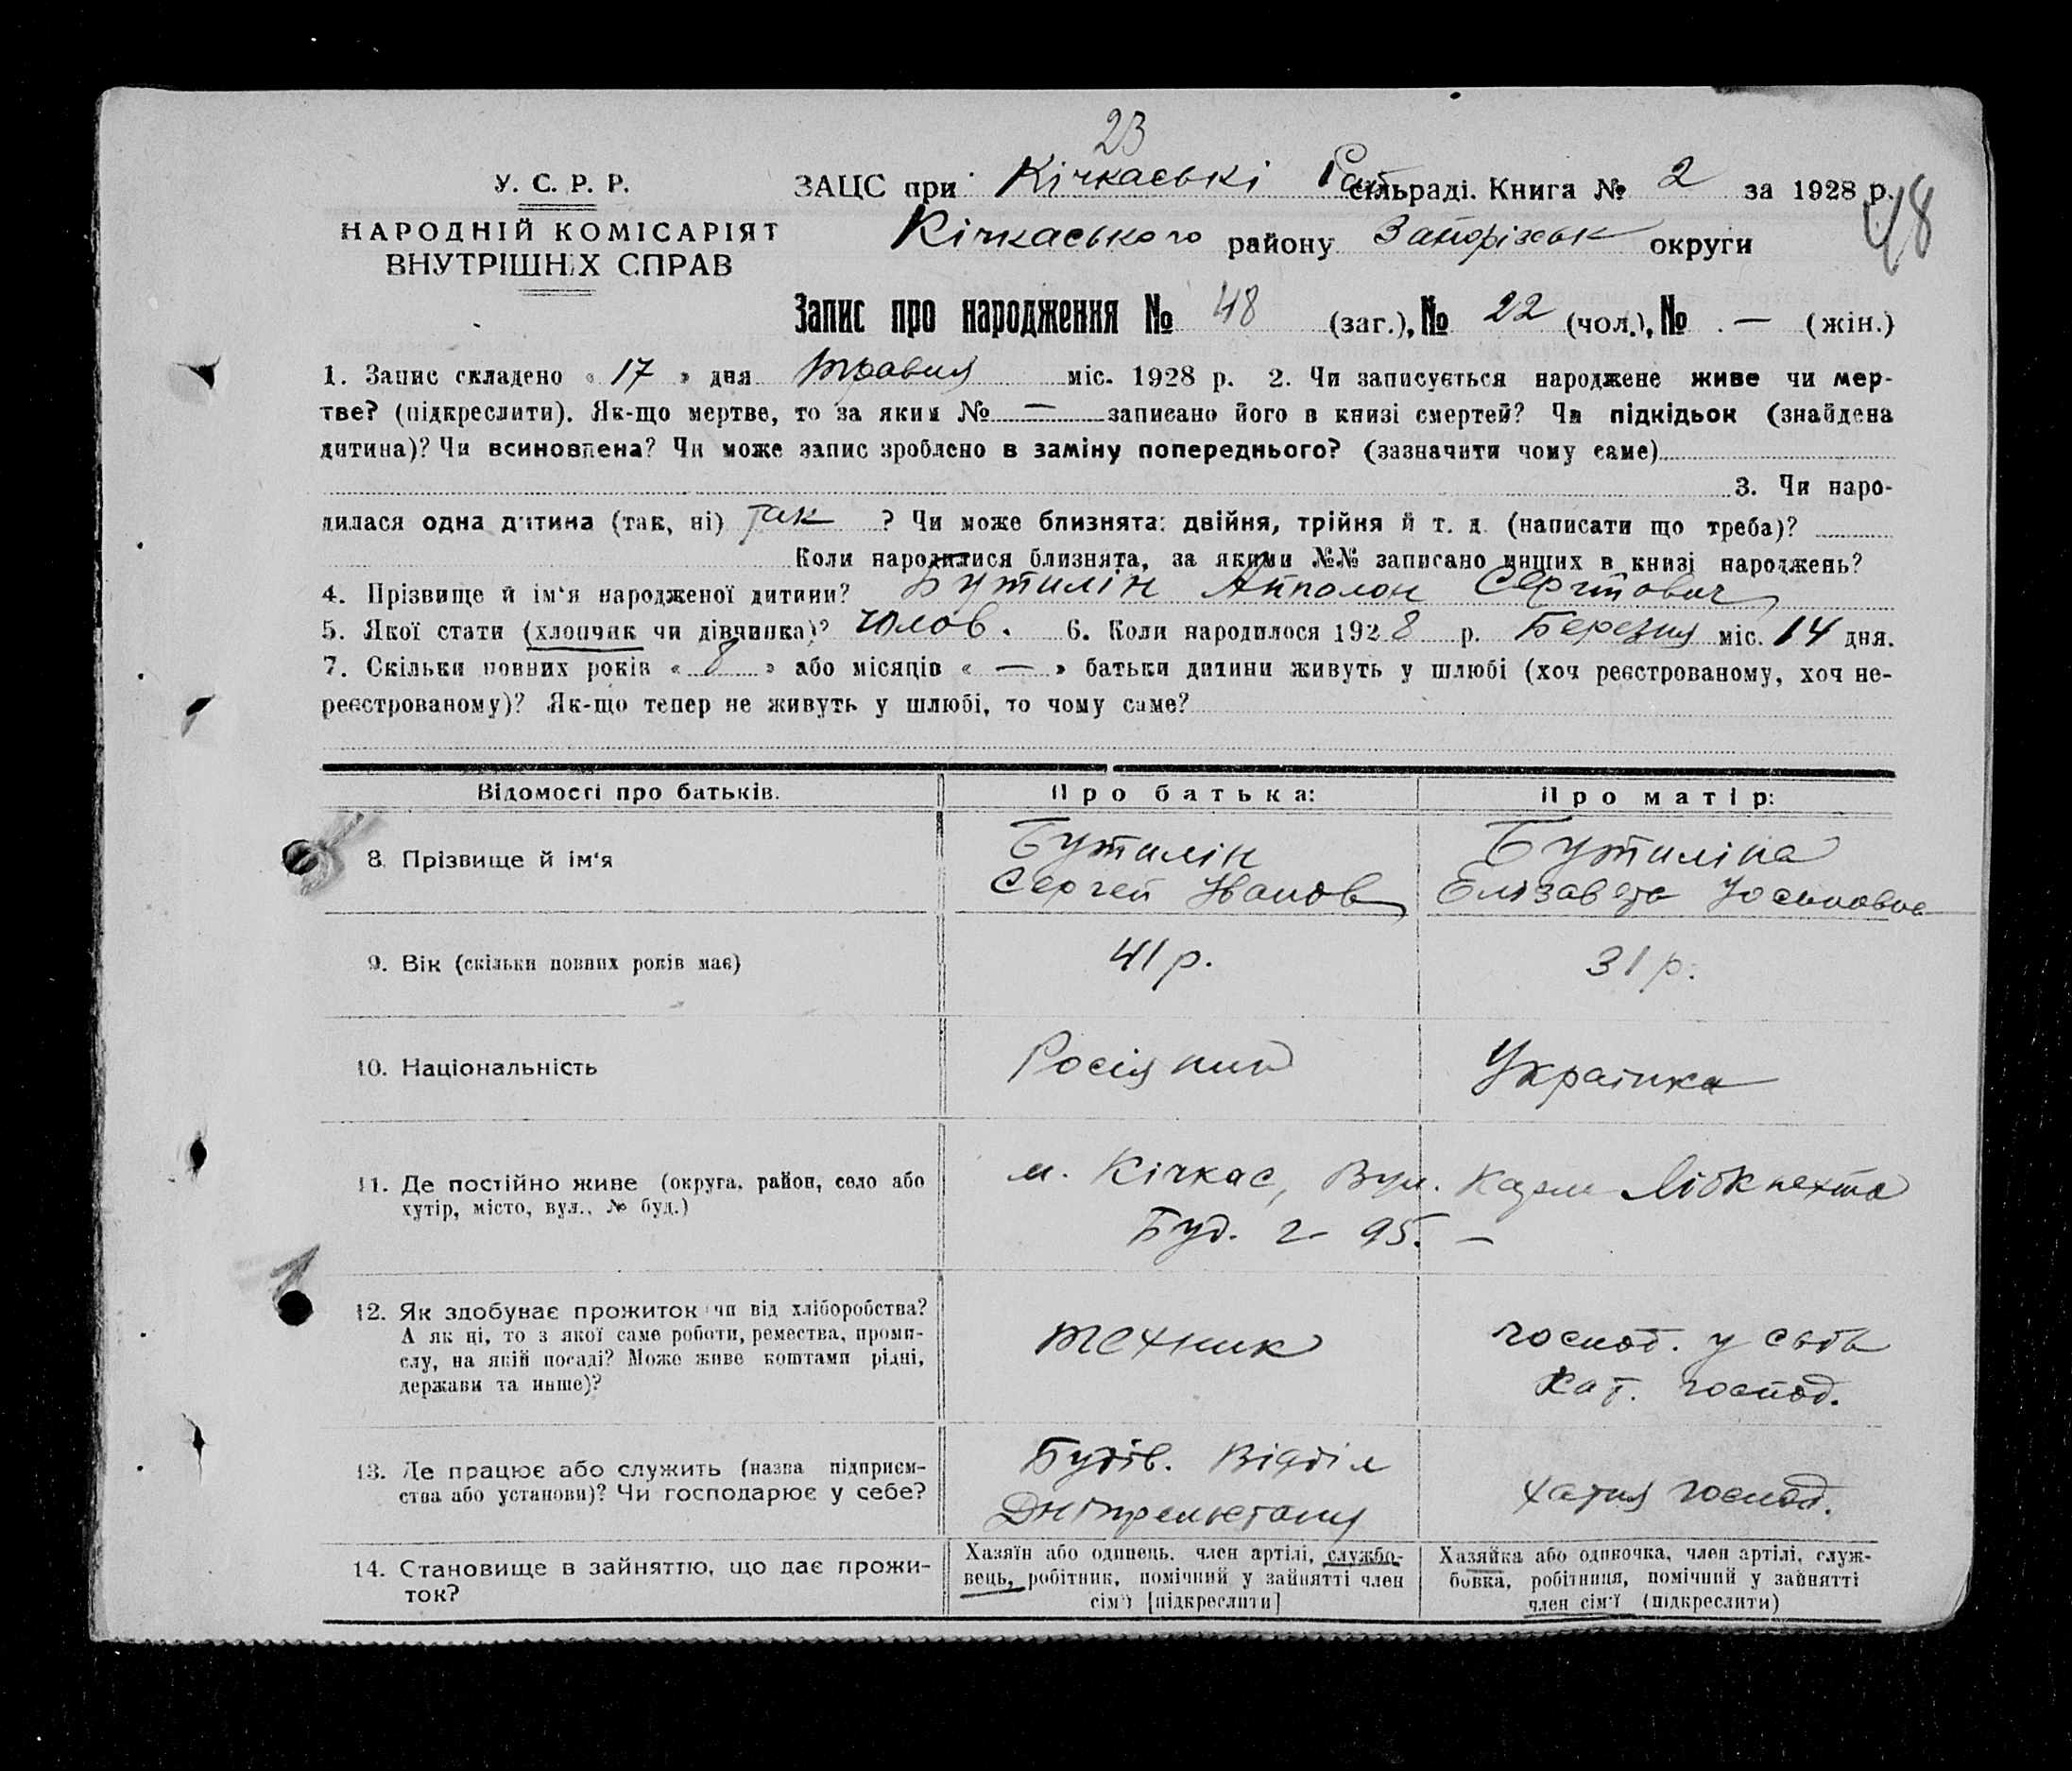 23
У. С. Р. Р.
НАРОДНІЙ КОМІСАРІЯТ
ВНУТРІШНІХ СПРАВ
ЗАЦС при Кічкаські Рай сільраді. Книга № 2 за 1928 р.
48
Кічкаського району Запорізськ округи
Запис про народження № 48 (заг.), № 22 (чол.), № — (жін.)
1. Запис складено « 17 » дня травня міс. 1928 р. 2. Чи записується народжене живе чи мер-
тве? (підкреслити). Як-що мертве, то за яким № — записано його в книзі смертей? Чи підкідьок (знайдена
дитина)? Чи всиновлена? Чи може запис зроблено в заміну попереднього? (зазначити чому саме)
3. Чи наро-
дилася одна дитина (так, ні) так ? Чи може близнята: двійня, трійня й т. д. (написати що треба)?
Коли народилися близнята, за якими №№ записано инших в книзі народжень?
4. Прізвище й ім‘я народженої дитини? Бутилін Апполон Сергійович
5. Якої стати (хлопчик чи дівчинка)? чолов. 6. Коли народилося 1928 р. Березня міс. 14 дня.
7. Скільки повних років « 8 » або місяців « — » батьки дитини живуть у шлюбі (хоч реєстрованому, хоч не-
реєстрованому)? Як-що тепер не живуть у шлюбі, то чому саме?
Відомості про батьків. Про батька: Про матір:
8. Прізвище й ім‘я
Бутилін
Сергей Іванов
Бутиліна
Елізавета Йосиповна
9. Вік (скільки повних років має) 41 р. 31 р.
10. Національність Росіянин Українка
11. Де постійно живе (округа, район, село або
хутір, місто, вул., № буд.)
м. Кічкас, Вул. Карла Лібкнехта
Буд. 95. —
12. Як здобуває прожиток чи від хліборобства?
А як ні, то з якої саме роботи, ремества, проми-
слу, на якій посаді? Може живе коштами рідні,
держави та инше)?
техник
господ. у себе
хат. господ.
13. Де працює або служить (назва підприєм-
ства або установи)? Чи господарює у себе?
Будів. Відділ
Дніпрельстану
хатня господ.
14. Становище в зайняттю, що дає прожи-
ток?
Хазяїн або одинець, член артілі, службо-
вець, робітник, помічний у зайнятті член
сім‘ї [підкреслити]
Хазяйка або одиночка, член артілі, служ-
бовка, робітниця, помічний у зайнятті
член сім‘ї (підкреслити)